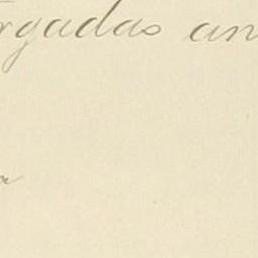 rgadas an
a